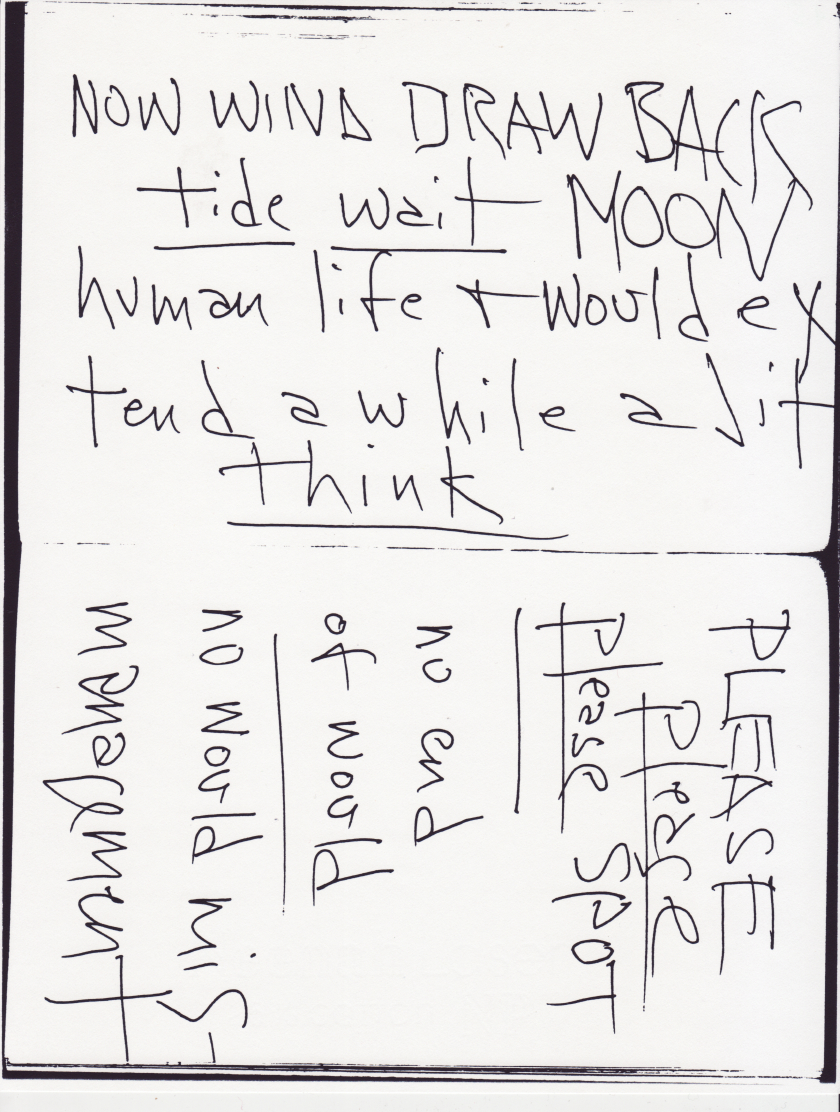 NOW WIND DRAW BACK
tide wait MOON
human life + would ex
tend a while a
think
PLEASE
Please
Please SPOT
no end
of would
no would miS-
management